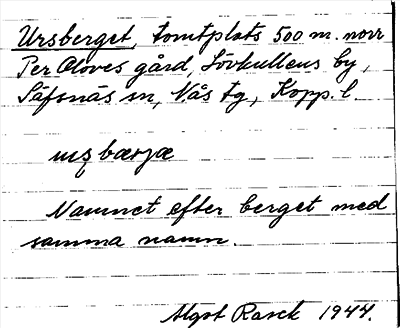 Ursberget, tomtplats 500 m. norr
Per Oloves gård, Lövkullens by,
Säfsnäs sn, Nås tg, Kopp. l.
Namnet efter berget med
samma namn.
Algot Rasck 1944.